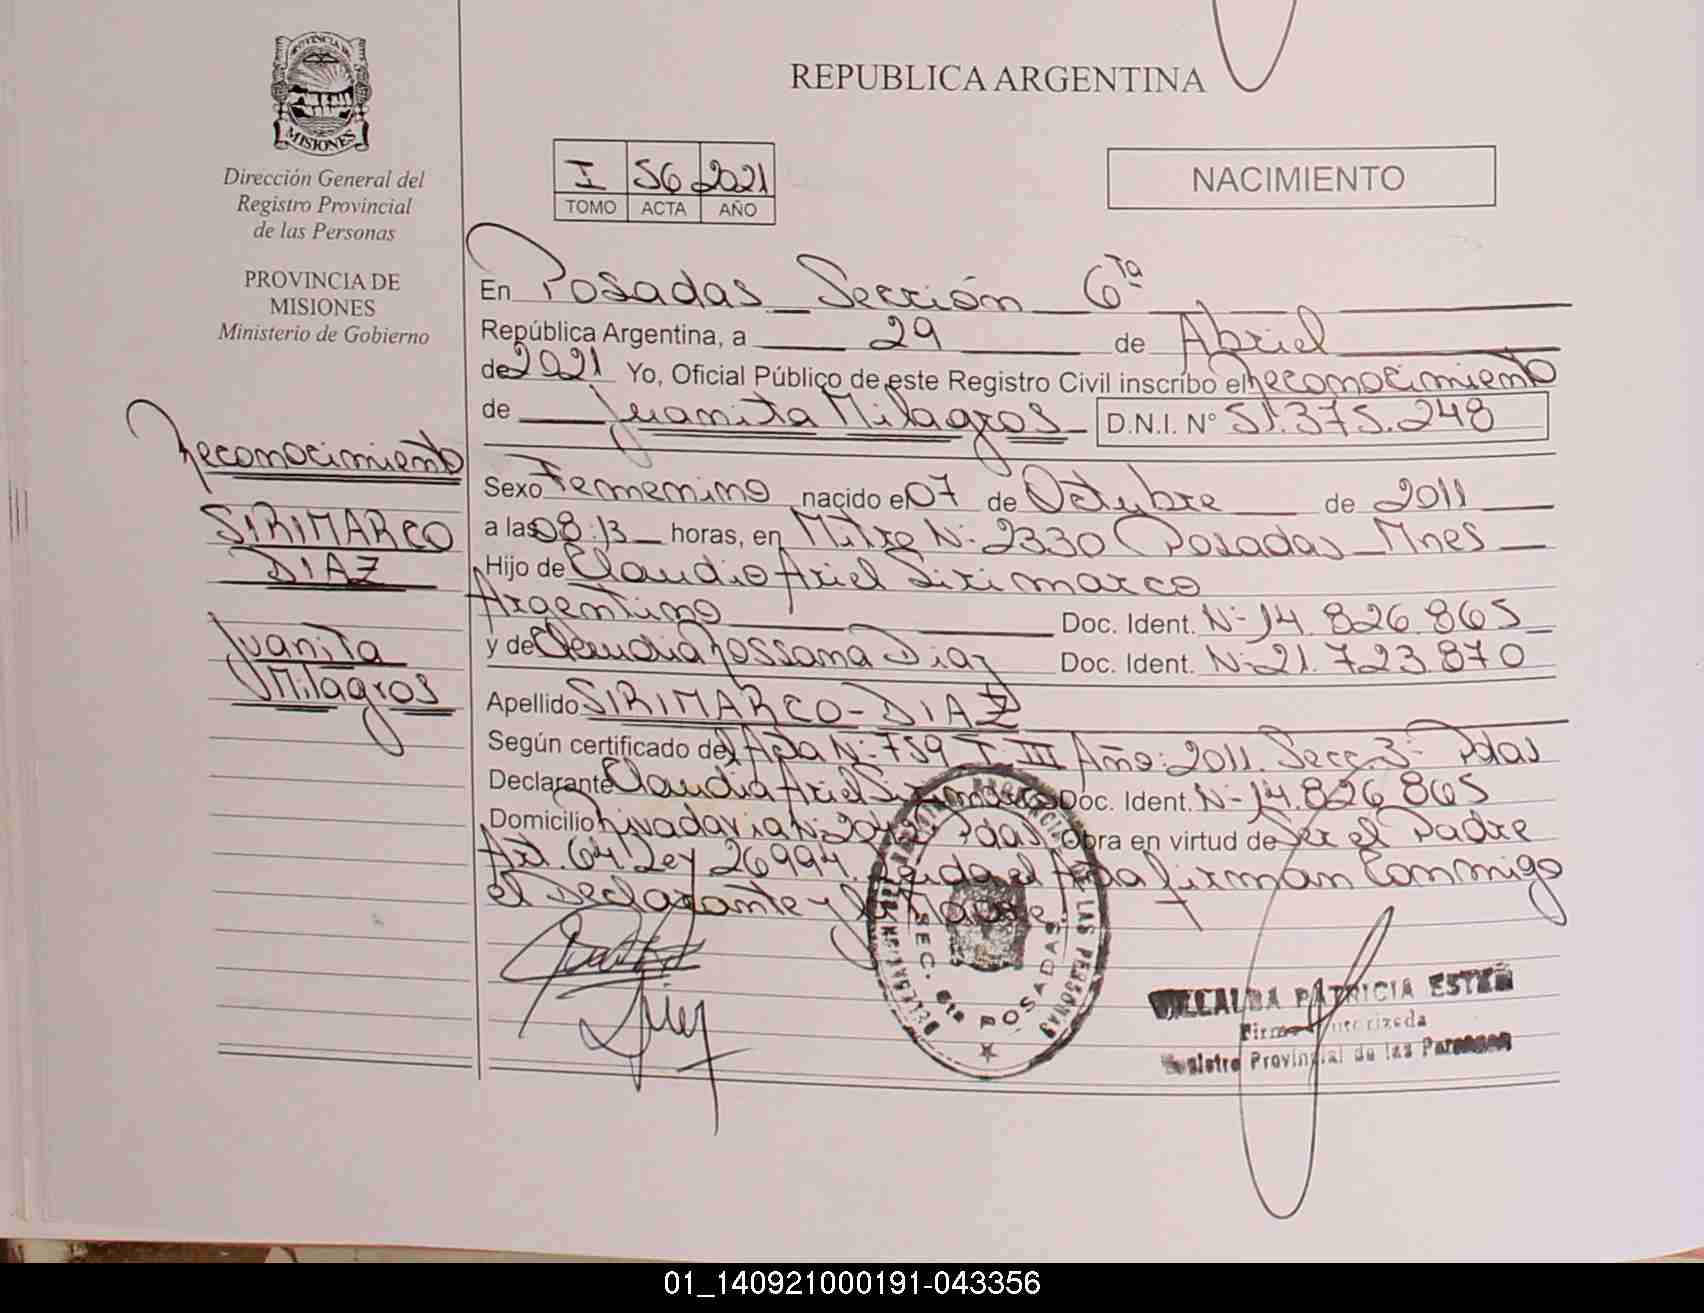 PROVINCIA DE
MISIONES
Dirección General del
Registro Provincial
de las Personas
PROVINCIA DE
MISIONES
Ministerio de Gobierno
Reconocimiento
SIRIMARCO
DIAZ
Juanita
Milagros
REPUBLICA ARGENTINA
I 56 2021
TOMO ACTA AÑO
NACIMIENTO
En Posadas Sección 6ta
República Argentina, a 29 de Abril
de 2021 Yo, Oficial Público de este Registro Civil inscribo el reconocimiento
de Juanita Milagros D.N.I. N° 51.375.248
Sexo Femenino nacido el 07 de Octubre de 2011
a las 08:13 horas, en Mitre N: 2330 Posadas Mnes
Hijo de Claudio Ariel Sirimarco
Argentino Doc. Ident. N- 14.826.865
y de Claudia Rossana Diaz Doc. Ident. N- 21.723.870
Apellido SIRIMARCO-DIAZ
Según certificado del Acta N: 759 T III Año: 2011. Secc 3- Pdas
Declarante Claudia Ariel Sirimarco Doc. Ident. N- 14.826.865
Domicilio Rivadavia N: Pdas. Obra en virtud de Ser el Padre
Art. 64 Ley 26994. Leida el Acta firman Conmigo
el Declarante y la Madre
SEC. 6ta POSADAS
DE LAS PERSONAS
PATRICIA ESTER
Firma Autorizada
Registro Provincial de las Personas
01_140921000191-043356